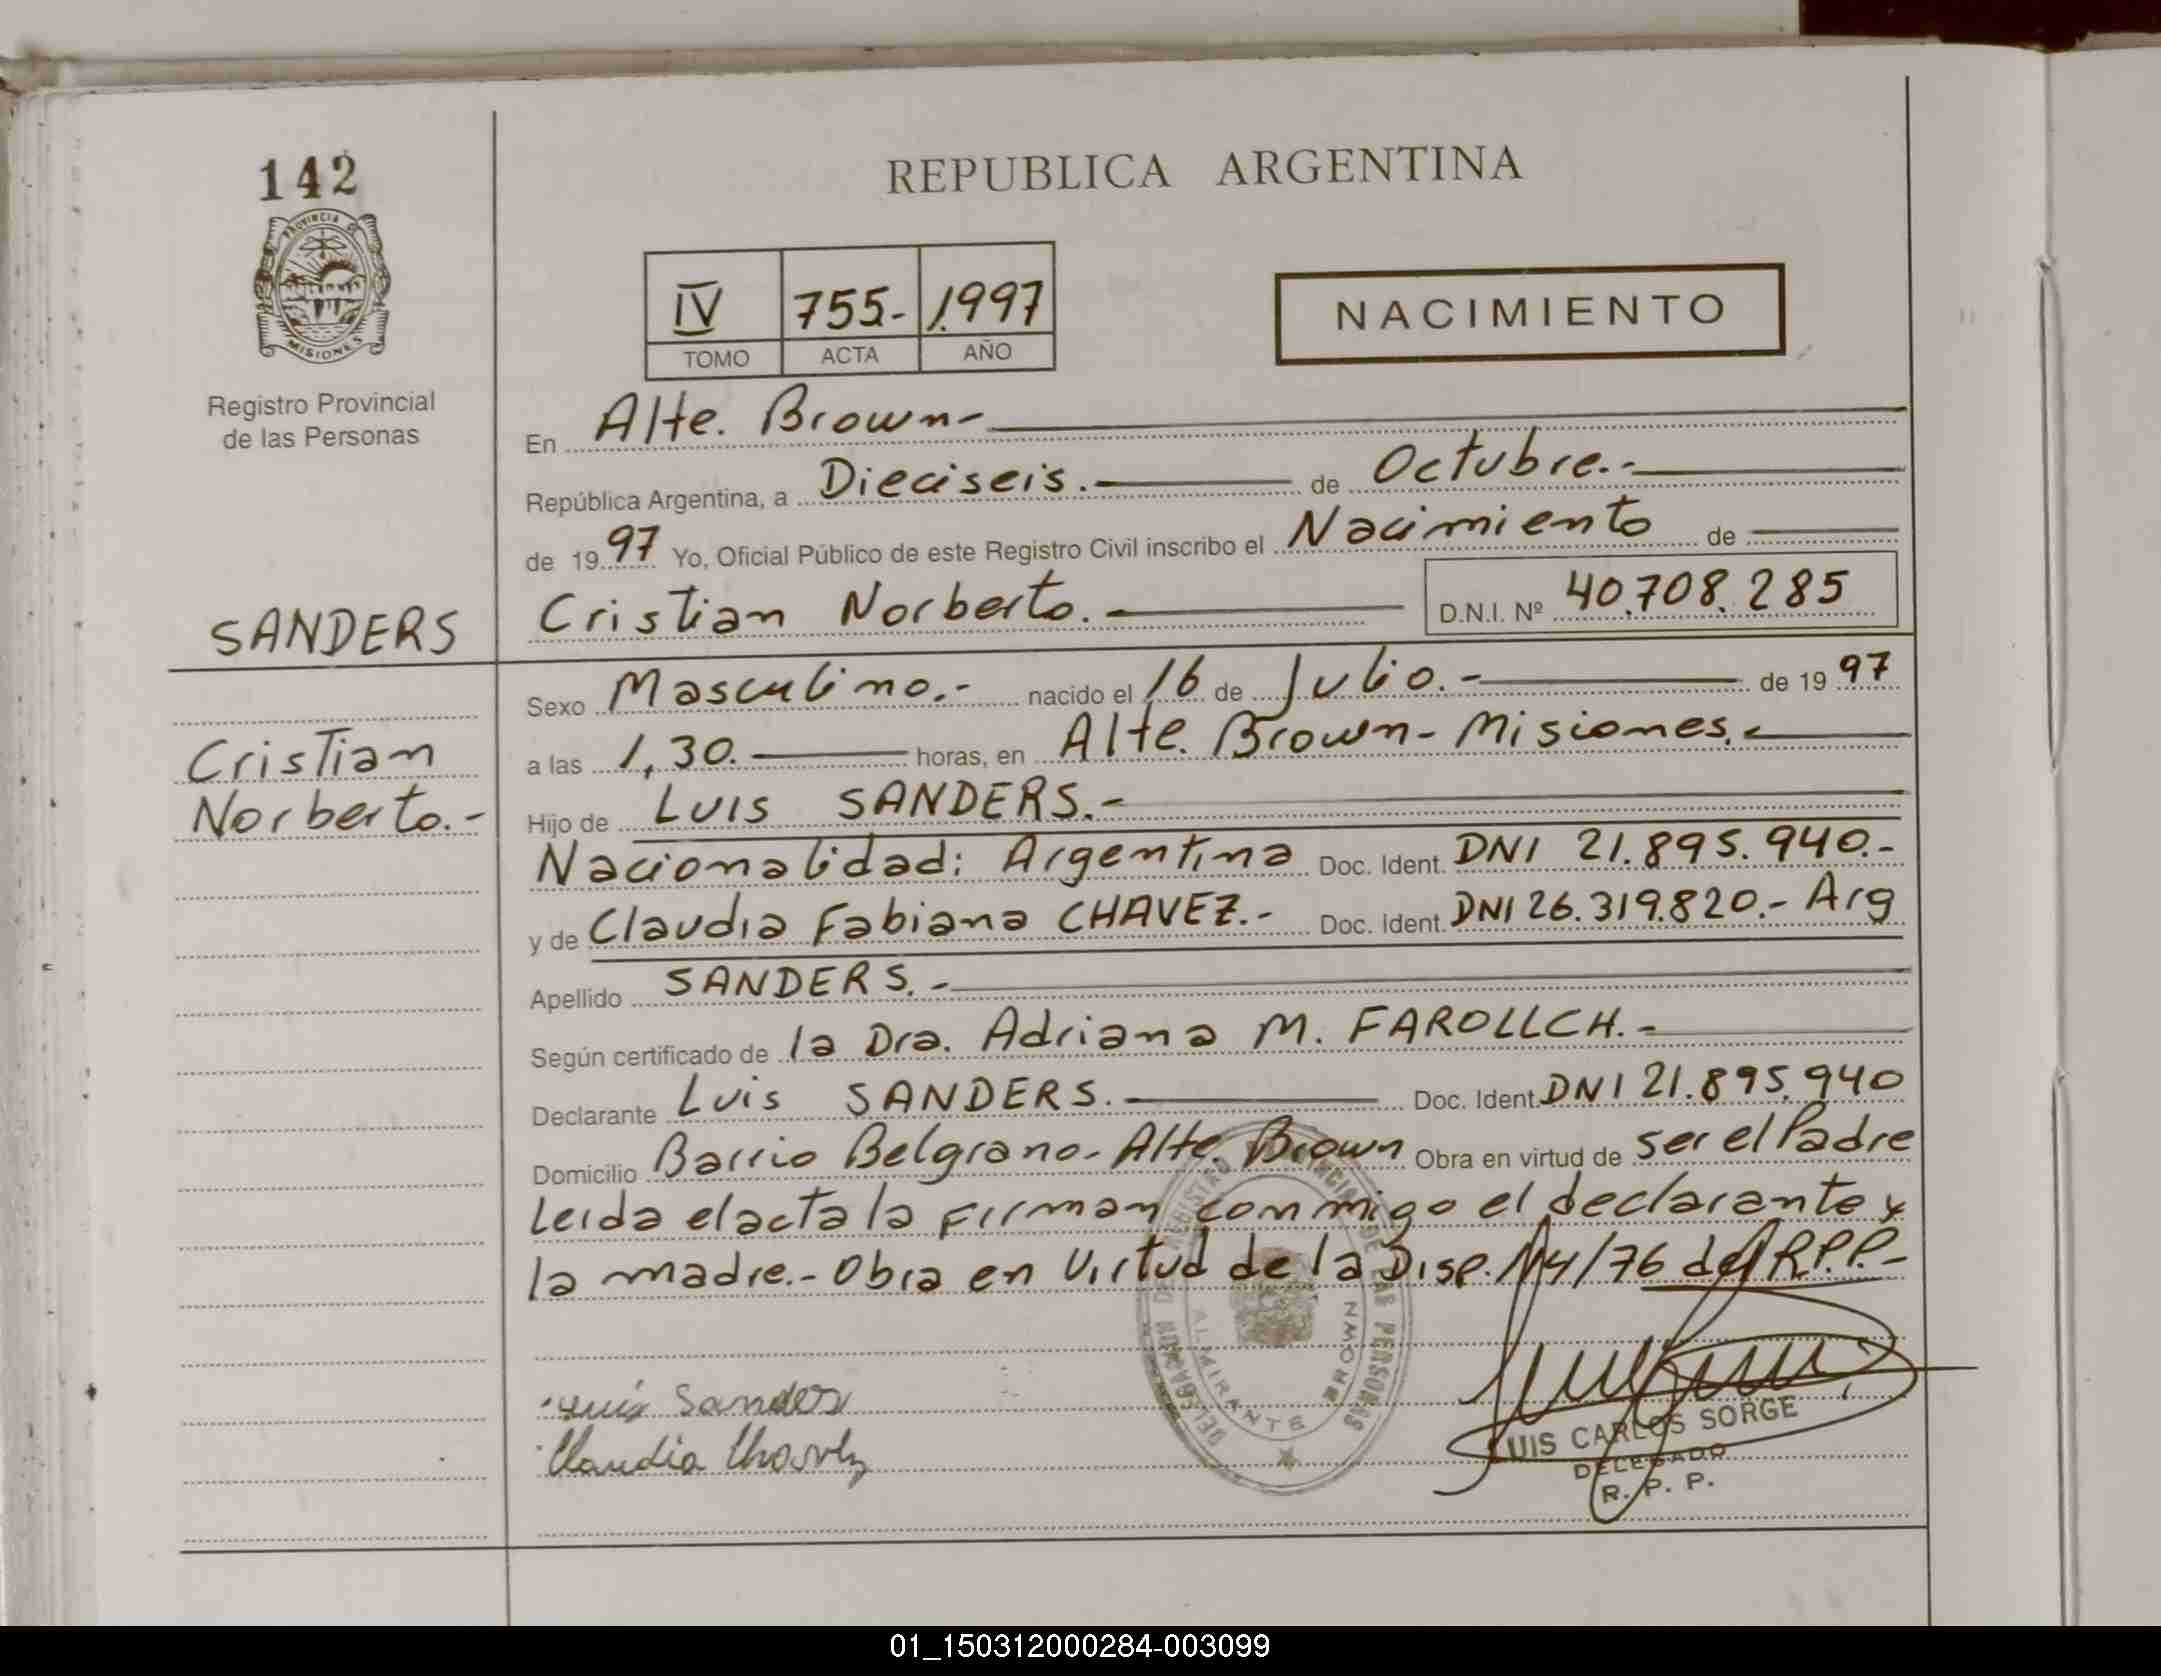 142
PROVINCIA DE
MISIONES
Registro Provincial
de las Personas
REPUBLICA ARGENTINA
IV 755.- 1.997
TOMO ACTA AÑO
NACIMIENTO
En Alte. Brown-
República Argentina, a Dieciseis. de Octubre.-
de 19 97 Yo, Oficial Público de este Registro Civil inscribo el Nacimiento de
Cristian Norberto. D.N.I. Nº 40.708.285
SANDERS
Cristian
Norberto.-
Sexo Masculino.- nacido el 16 de Julio.- de 19 97
a las 1,30. horas, en Alte. Brown- Misiones.
Hijo de LUIS SANDERS.-
Nacionalidad: Argentina Doc. Ident. DNI 21.895.940.-
y de Claudia Fabiana CHAVEZ.- Doc. Ident. DNI 26.319.820.- Arg
Apellido SANDERS.-
Según certificado de la Dra. Adriana M. FAROLLCH.-
Declarante Luis SANDERS. Doc. Ident. DNI 21.895.940
Domicilio Barrio Belgrano- Alte. Brown Obra en virtud de ser el Padre
Leida el acta la firman conmigo el declarante y
la madre.- Obra en Virtud de la Disp. N4/76 del R.P.P.-
DELEGACION DE REGISTRO PROVINCIAL DE LAS PERSONAS
ALMIRANTE BROWN
Luis Sanders
Claudia Chavez
LUIS CARLOS SORGE
DELEGADO
R. P. P.
01_150312000284-003099